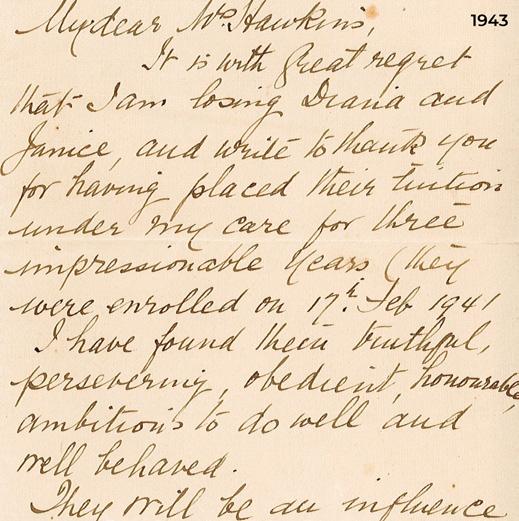 1943
My dear Mrs Hawkins,
It is with great regret
that I am losing Diana and
Janice, and write to thank you
for having placed their tuition
under my care for three
impressionable years (they
were enrolled on 17th. Feb 1941
I have found them truthful,
persevering, obedient, honourable,
ambitious to do well and
well behaved.
They will be an influence